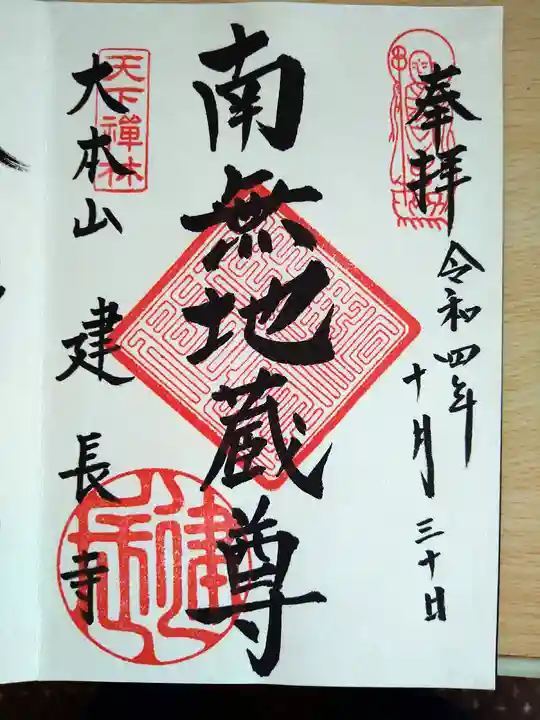 奉拝
令和四年
十月三十日
南無地蔵尊
天下禅林
大本山建長寺
建長